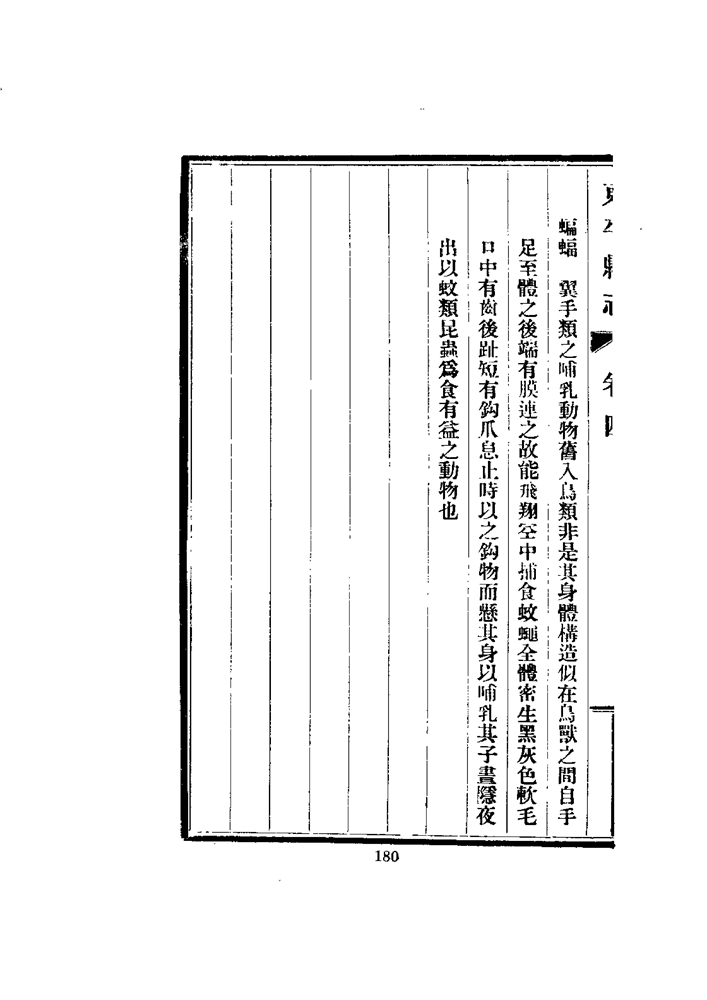 東平縣志 卷四
蝙蝠 翼手類之哺乳動物舊入鳥類非是其身體構造似在鳥獸之間自手
足至體之後端有膜連之故能飛翔空中捕食蚊蠅全體密生黑灰色軟毛
口中有齒後趾短有鈎爪息止時以之鈎物而懸其身以哺乳其子晝隱夜
出以蚊類昆蟲爲食有益之動物也
180